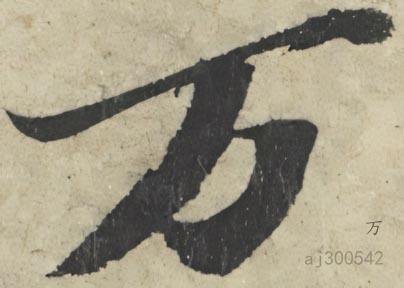 万
万
aj300542